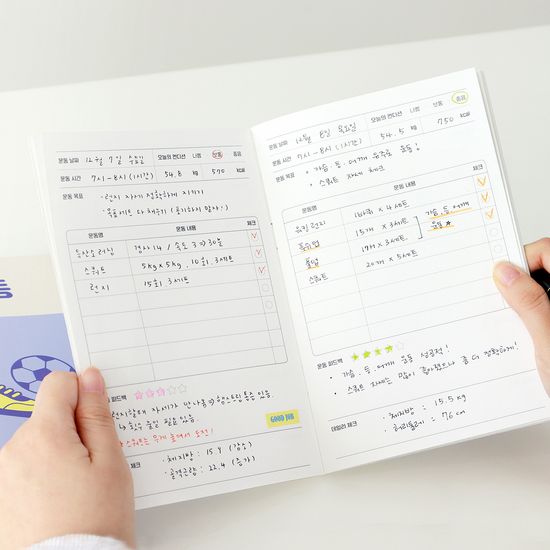 운동 날짜 12월 7일 수요일 오늘의 컨디션 나쁨 보통 좋음
운동 시간 7시-8시 (1시간) 54.8 kg 570 kcal
운동 목표 · 런지 자세 정확하게 지키기
운동명 운동 내용 체크
경사 14 / 속도 3 30분
스쿼트 5kg x 5kg, 10회, 3세트
런지 15회, 3세트
운동 피드백
GOOD JOB
체크 · 체지방 : 15.4 (감소)
· 골격근량 : 22.4 (증가)
운동 날짜 12월 8일 목요일 오늘의 컨디션 나쁨 보통 좋음
운동 시간 7시-8시 (1시간) 54.5 kg 750 kcal
운동 목표 · 가슴, 등, 어깨 위주로 운동!
· 스쿼트 자세 체크
운동명 운동 내용 체크
워킹 런지 x 4세트
15개 x 3세트 가슴, 등, 어깨
풀업 x 3세트 운동
스쿼트 20개 x 5세트
운동 피드백
· 가슴, 등, 어깨 운동 성공적!
· 스쿼트 자세는 많이 좋아졌으나 좀 더 정확하게!
데일리 체크 · 체지방 : 15.5 kg
· 허리둘레 : 76 cm